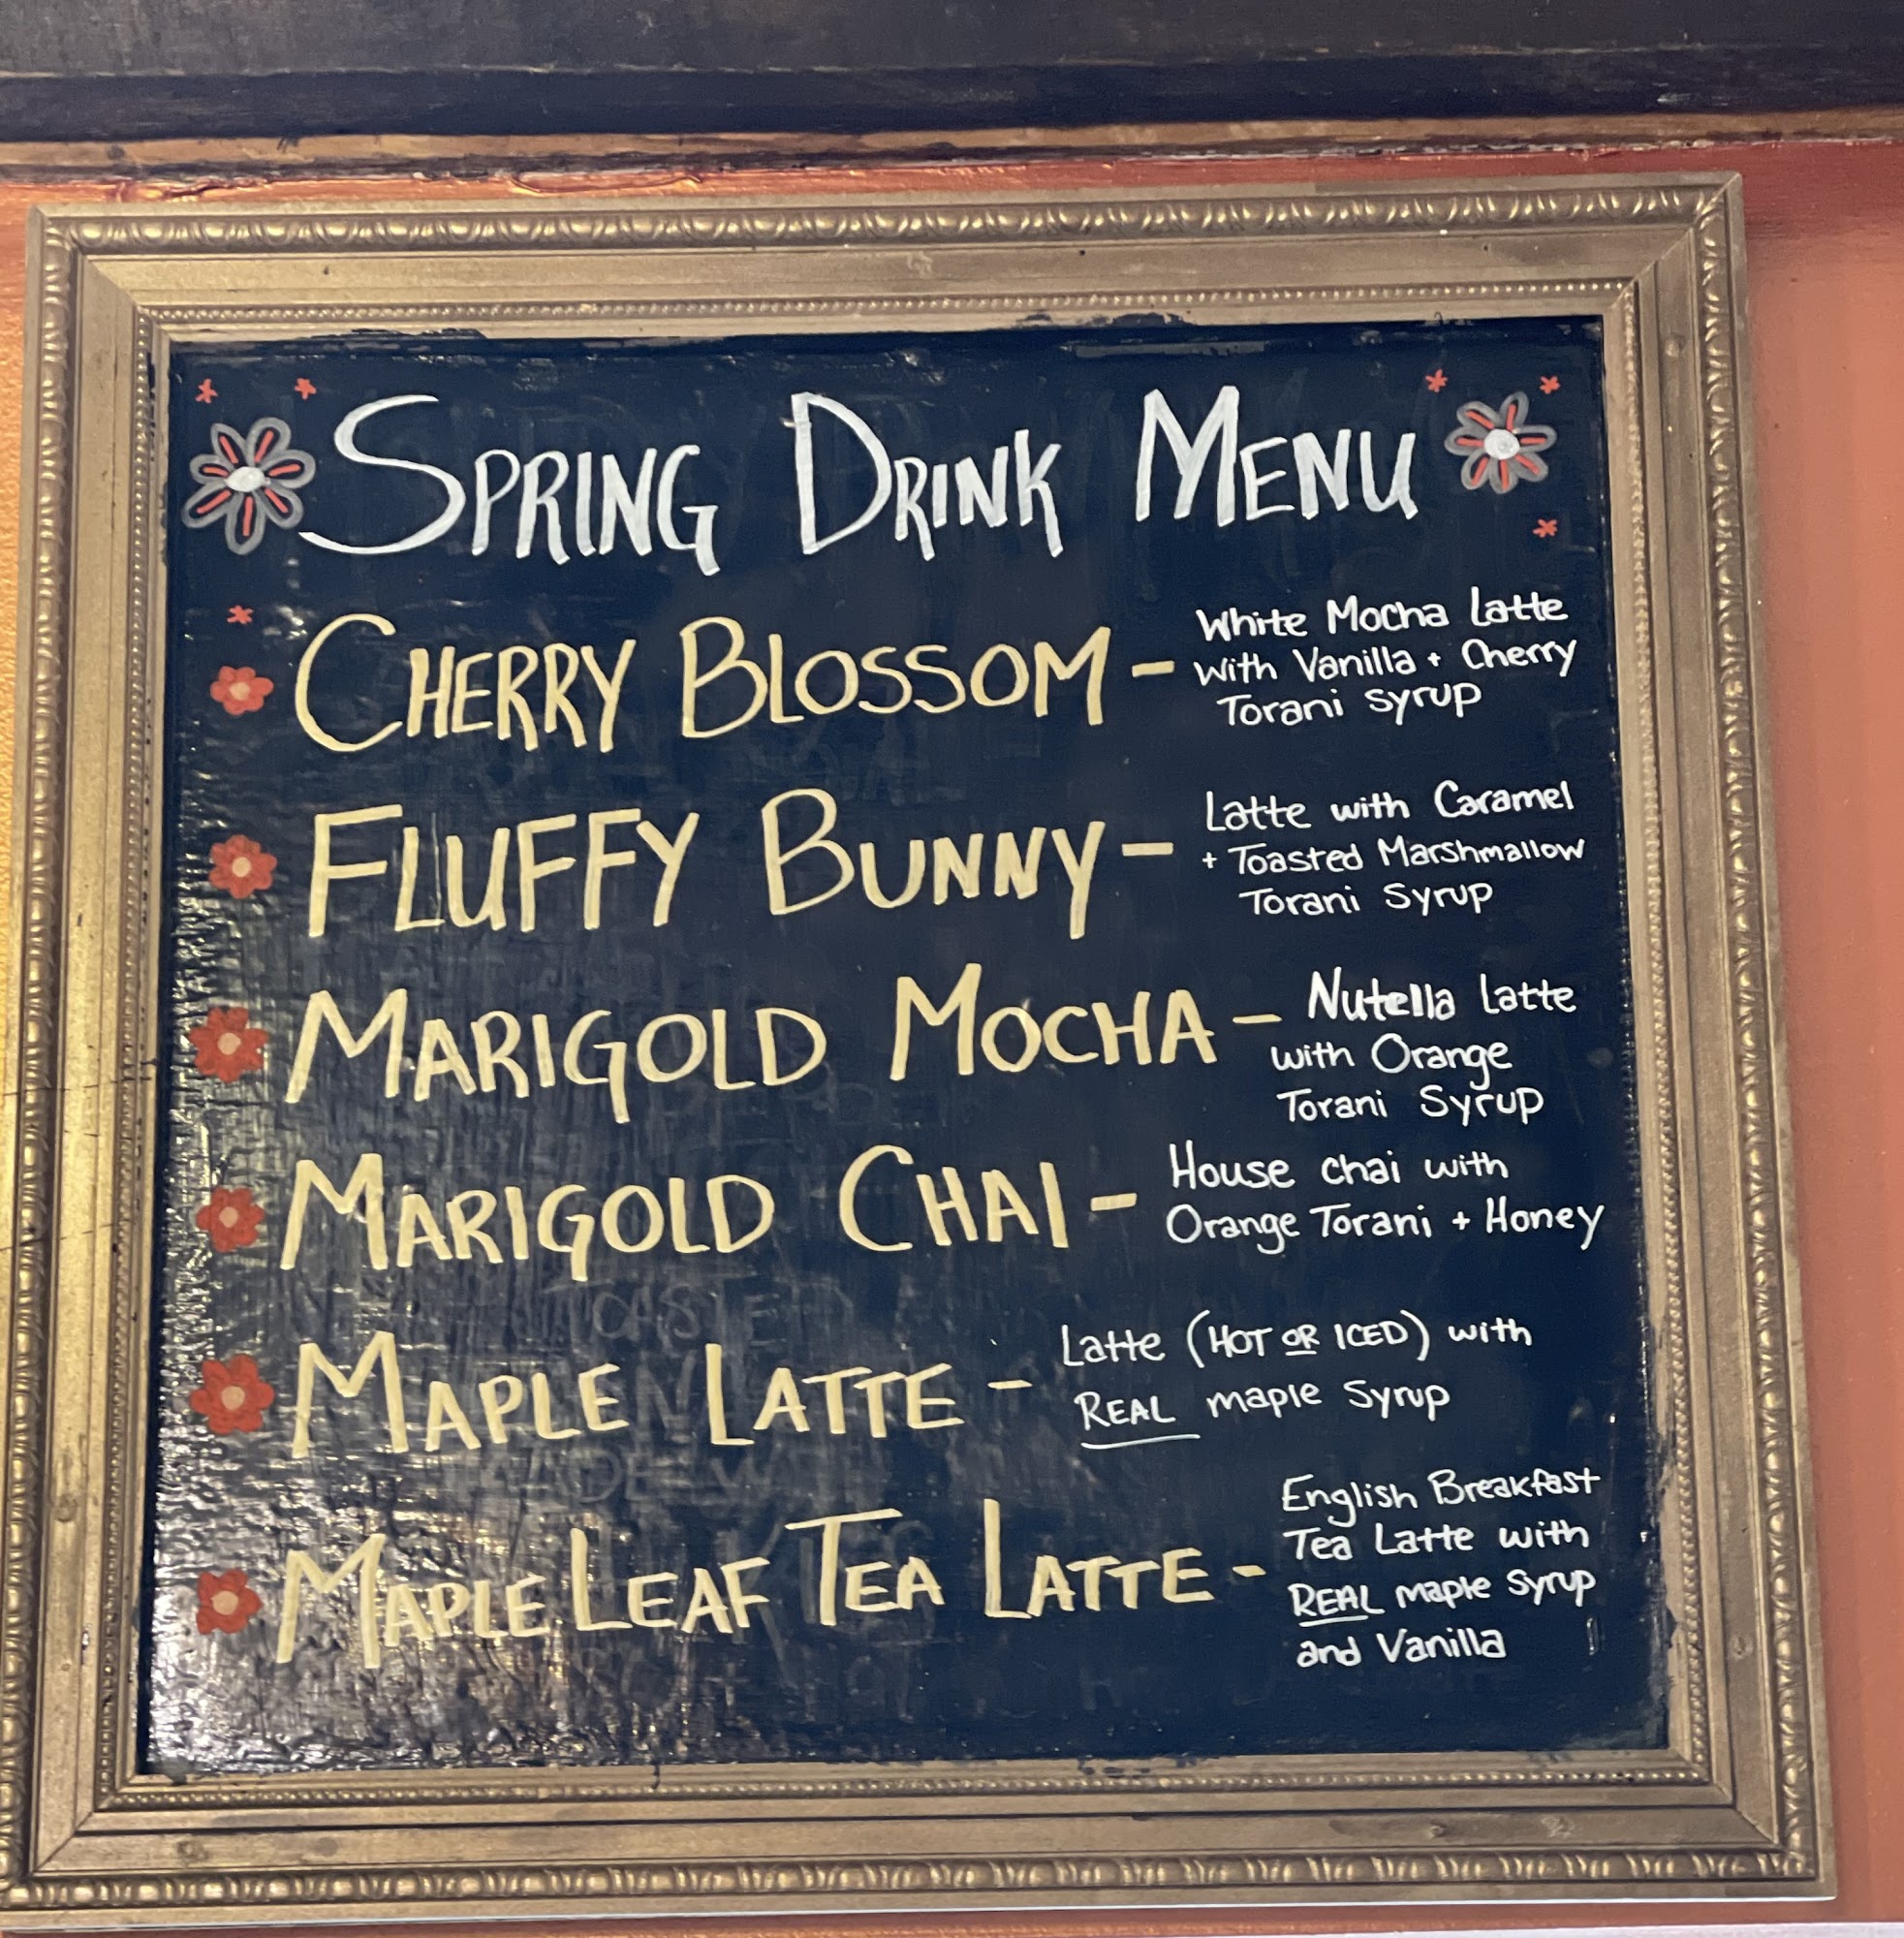 SPRING DRINK MENU
CHERRY BLOSSOM - White Mocha Latte
with Vanilla + Cherry
Torani Syrup
FLUFFY BUNNY - Latte with Caramel
+ Toasted Marshmallow
Torani Syrup
MARIGOLD MOCHA - Nutella Latte
with Orange
Torani Syrup
MARIGOLD CHAI - House chai with
Orange Torani + Honey
MAPLE LATTE - Latte (HOT OR ICED) with
REAL maple Syrup
MAPLE LEAF TEA LATTE - English Breakfast
Tea Latte with
REAL maple Syrup
and Vanilla